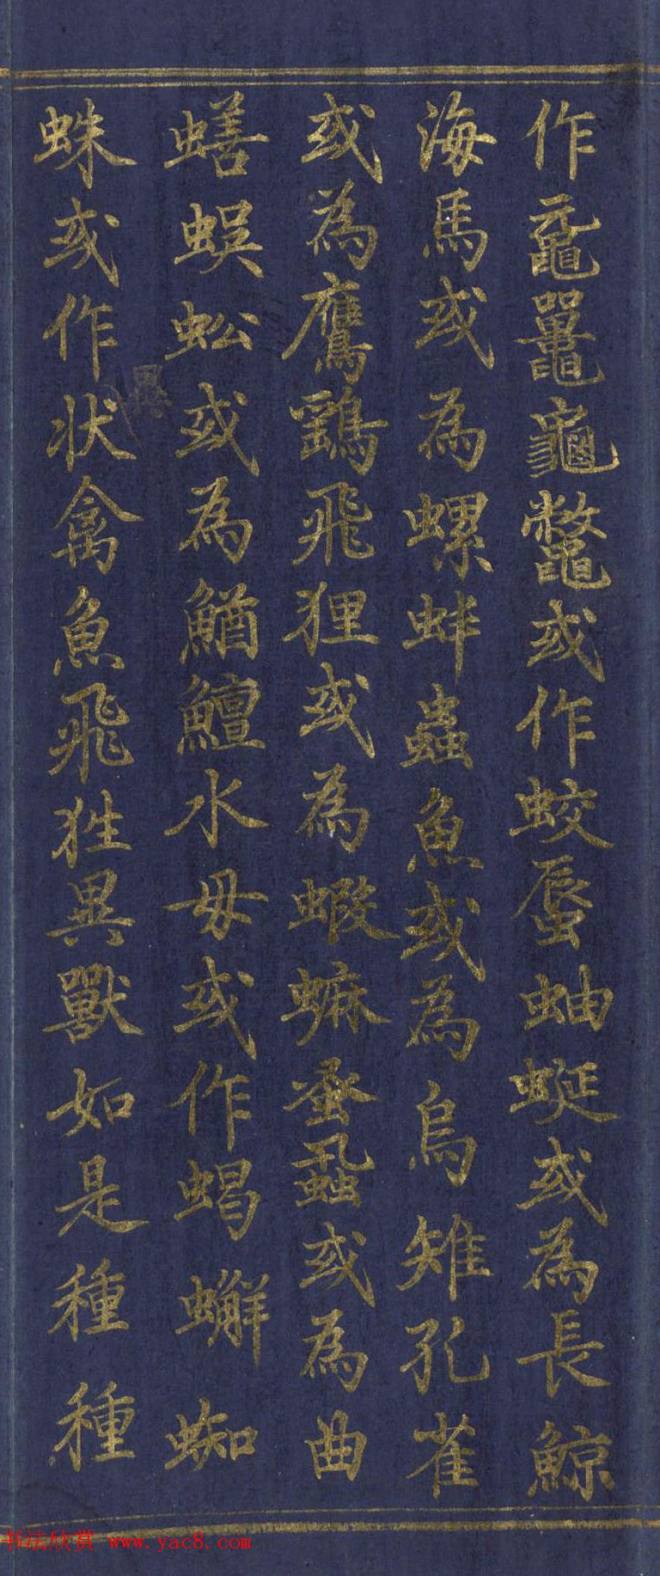 作黿鼉龜鼈或作蛟蜃蚰蜒或為長鯨
海馬或為螺蚌蟲魚或為烏雉孔雀
或為鷹鷂飛狸或為蝦蟆蚤蝨或為曲
蟮蜈蚣或為鰌鱣水母或作蝎蠏蜘
蛛或作状禽魚飛狌異獸如是種種
異
书法欣赏 www.yac8.com